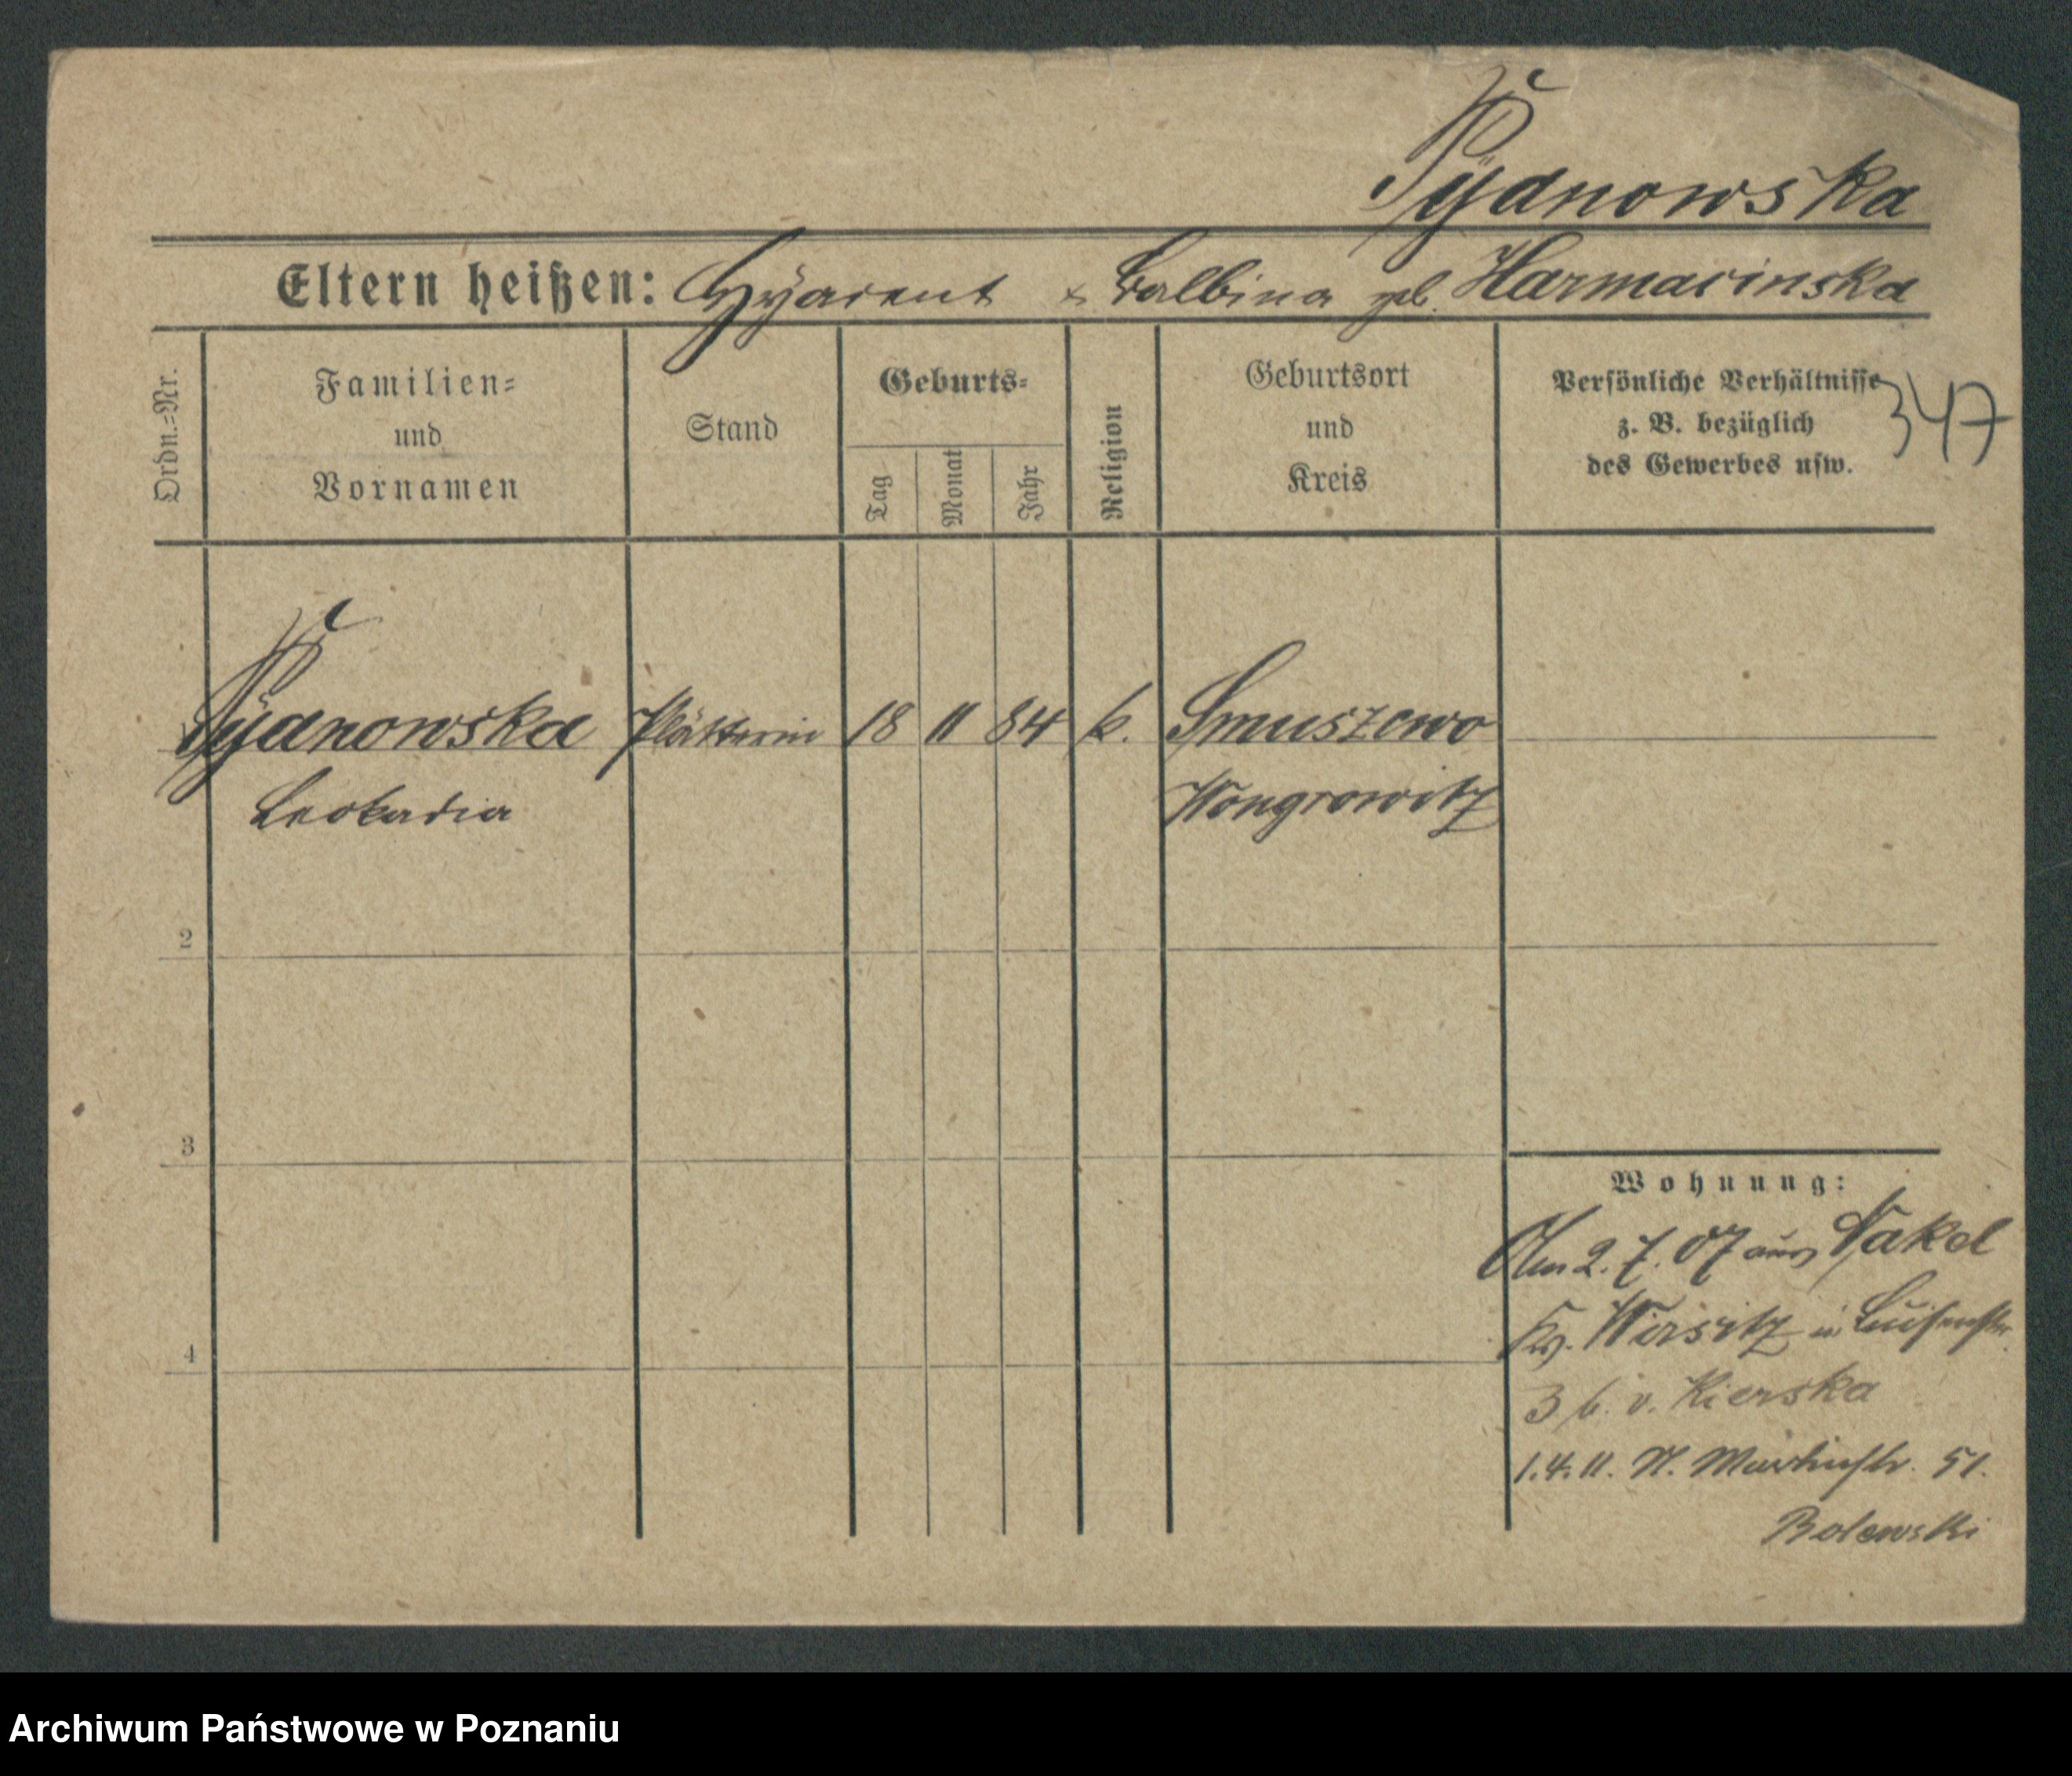 Pÿdanowska
Eltern heißen: Hyacent & Balbina geb. Harmacinska
Ordn.=Nr.
Familien=
und
Vornamen
Stand
Geburts=
Tag
Monat
Jahr
Religion
Geburtsort
und
Kreis
Persönliche Verhältnisse
z. B. bezüglich
des Gewerbes usw.
347
Pÿdanowska Plätterin 18 11 84 k. Smuszewo
Leokadia Wongrowitz
2
3
4
Wohnung:
Am 2. 7. 07 aus Nakel
Kr. Wirsitz in Luisenstr.
3 b. v. Kierska
1.4.11. St. Martinstr. 51.
Bolewski
Archiwum Państwowe w Poznaniu